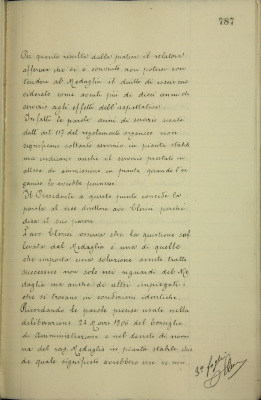 787
Per quanto risulta dalla pratica il relatore
afferma che si è convinto non potersi con-
tendere al Medaglia il diritto di essere con-
siderato come avente più di dieci anni di
servizio agli effetti dell'aspettativa.
Infatti le parole anni di servizio usate
dall'art. 117 del regolamento organico non
significano soltanto servizio in pianta stabile
ma indicano anche il servizio prestato in
attesa di ammissione in pianta quando l'or-
ganico lo avrebbe permesso.
Il Presidente a questo punto concede la
parola al vice direttore avv. perchè
dica il suo parere.
L'avv. osserva che la questione sol-
levata dal Medaglia è una di quelle
che importa una soluzione avente tratto
successivo non solo nei riguardi del Me-
daglia ma anche di altri impiegati
che si trovano in condizioni identiche.
Ricordando le parole precise usate nella
deliberazione 27 Marzo 1906 del Consiglio
di Amministrazione e nel decreto di nomi-
na del rag. Medaglia in pianta stabile chie-
de quale significato avrebbero
3° foglio